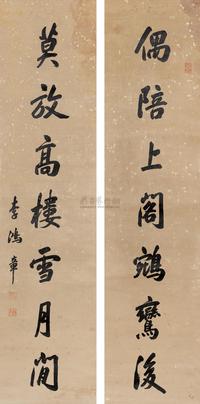 偶陪上閣鵷鸞後
莫放高樓雪月閒
李鴻章